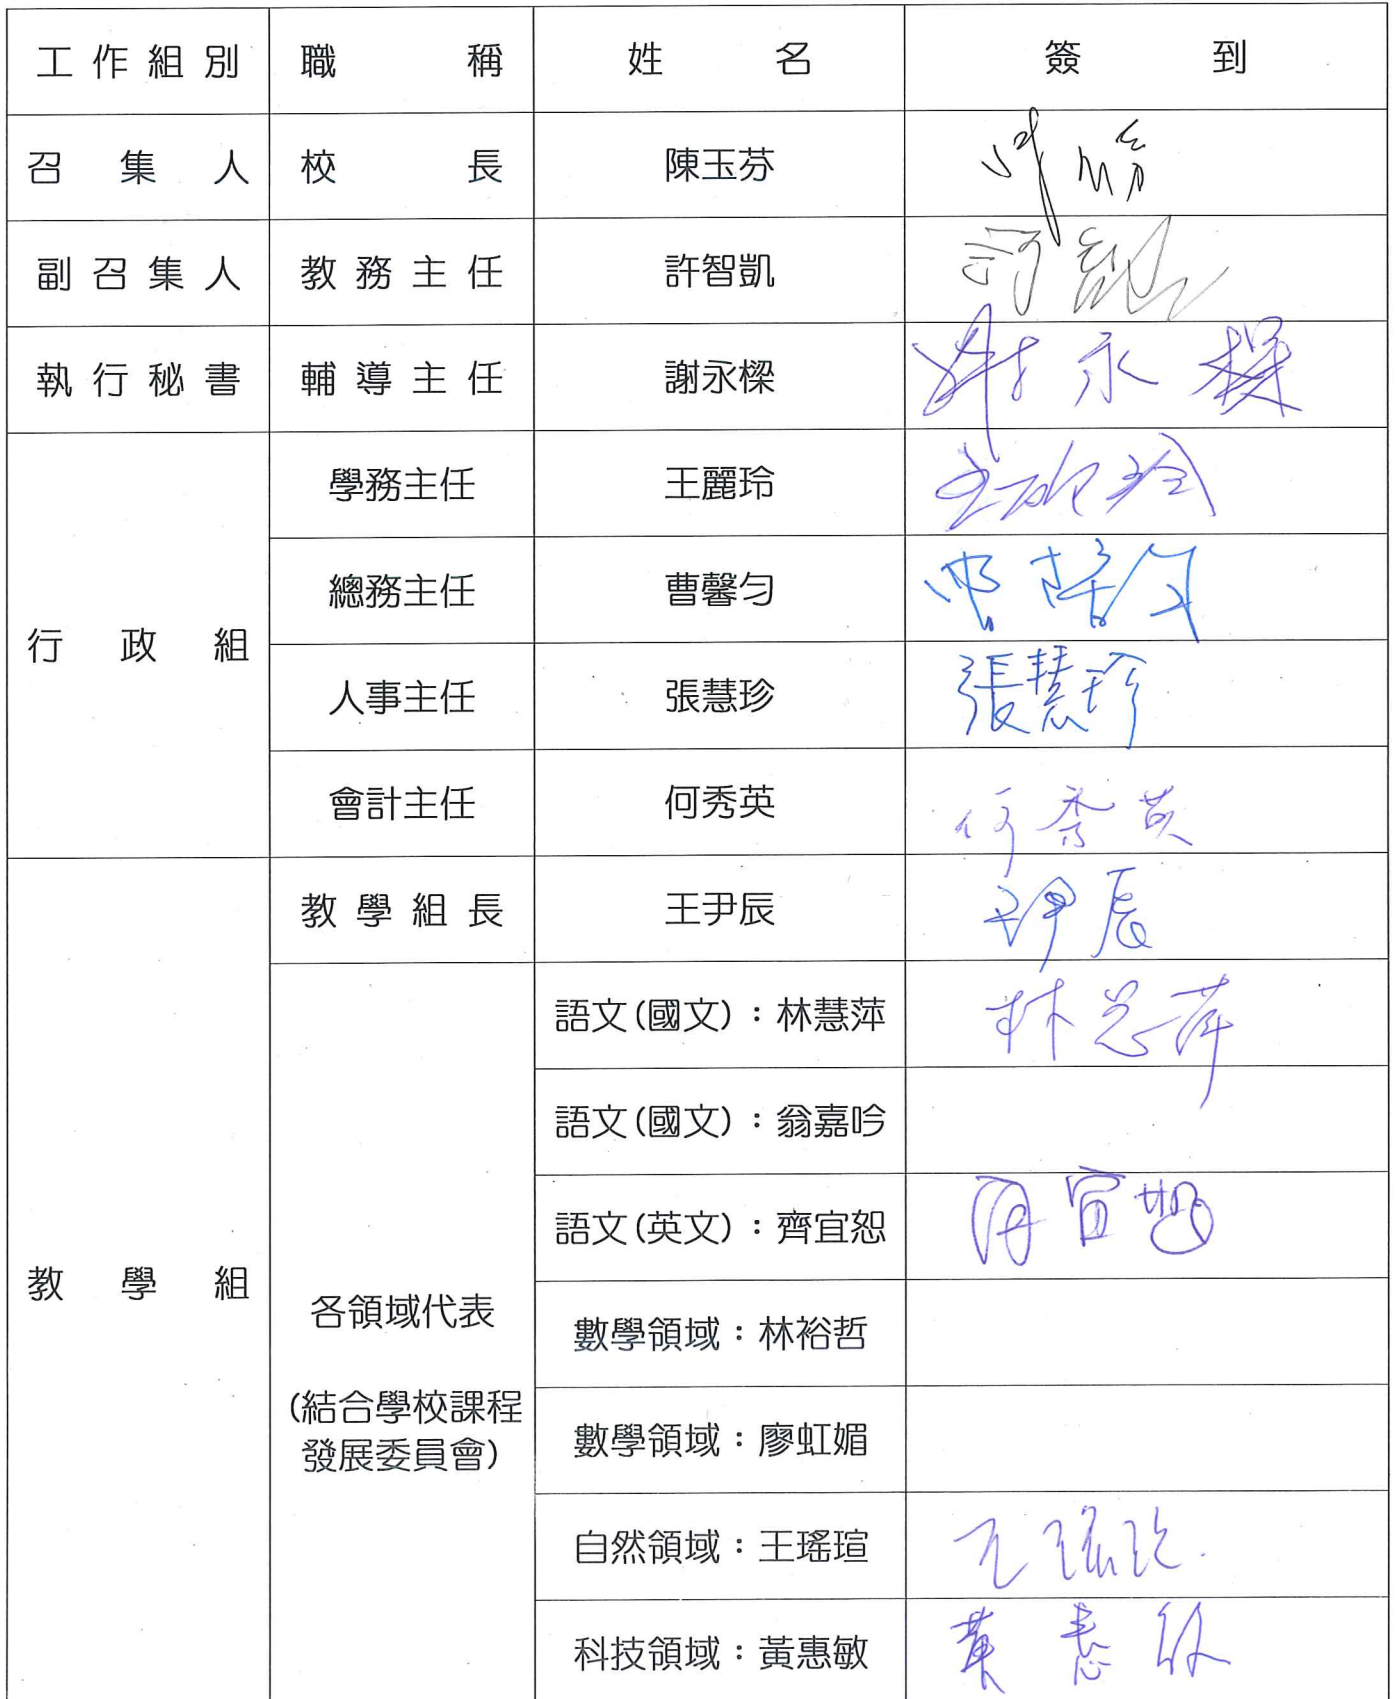 工作組別 職稱 姓名 簽到
召集人 校長 陳玉芬
副召集人 教務主任 許智凱
執行秘書 輔導主任 謝永樑 謝永樑
行政組
學務主任 王麗玲
總務主任 曹馨勻
人事主任 張慧珍 張慧珍
會計主任 何秀英 何秀英
教學組
教學組長 王尹辰
各領域代表
(結合學校課程
發展委員會)
語文(國文):林慧萍
語文(國文):翁嘉吟
語文(英文):齊宜恕
數學領域:林裕哲
數學領域:廖虹媚
自然領域:王瑤瑄
科技領域:黃惠敏 黃惠敏